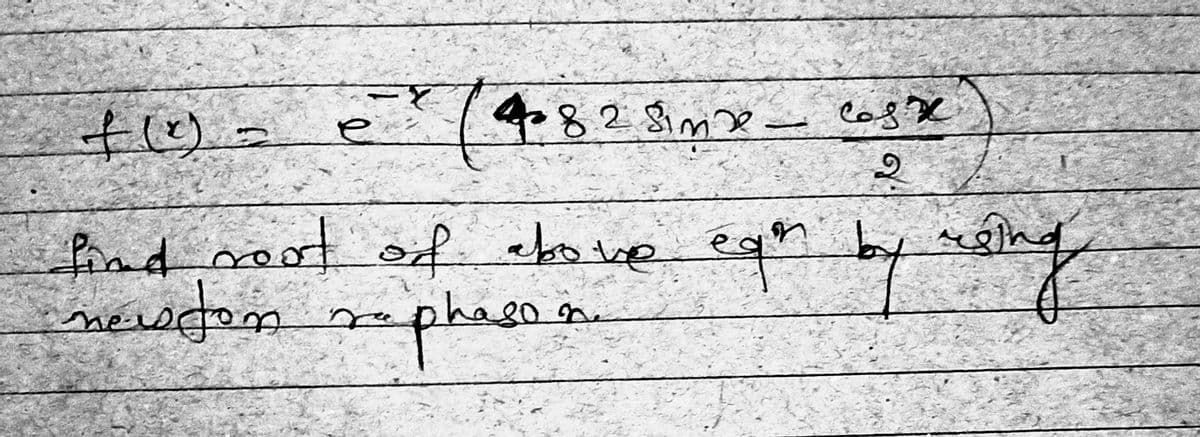 f(x) = e^-x (4.82 sin x - cos x / 2)
find root of above eqn by using
newdton raphason.